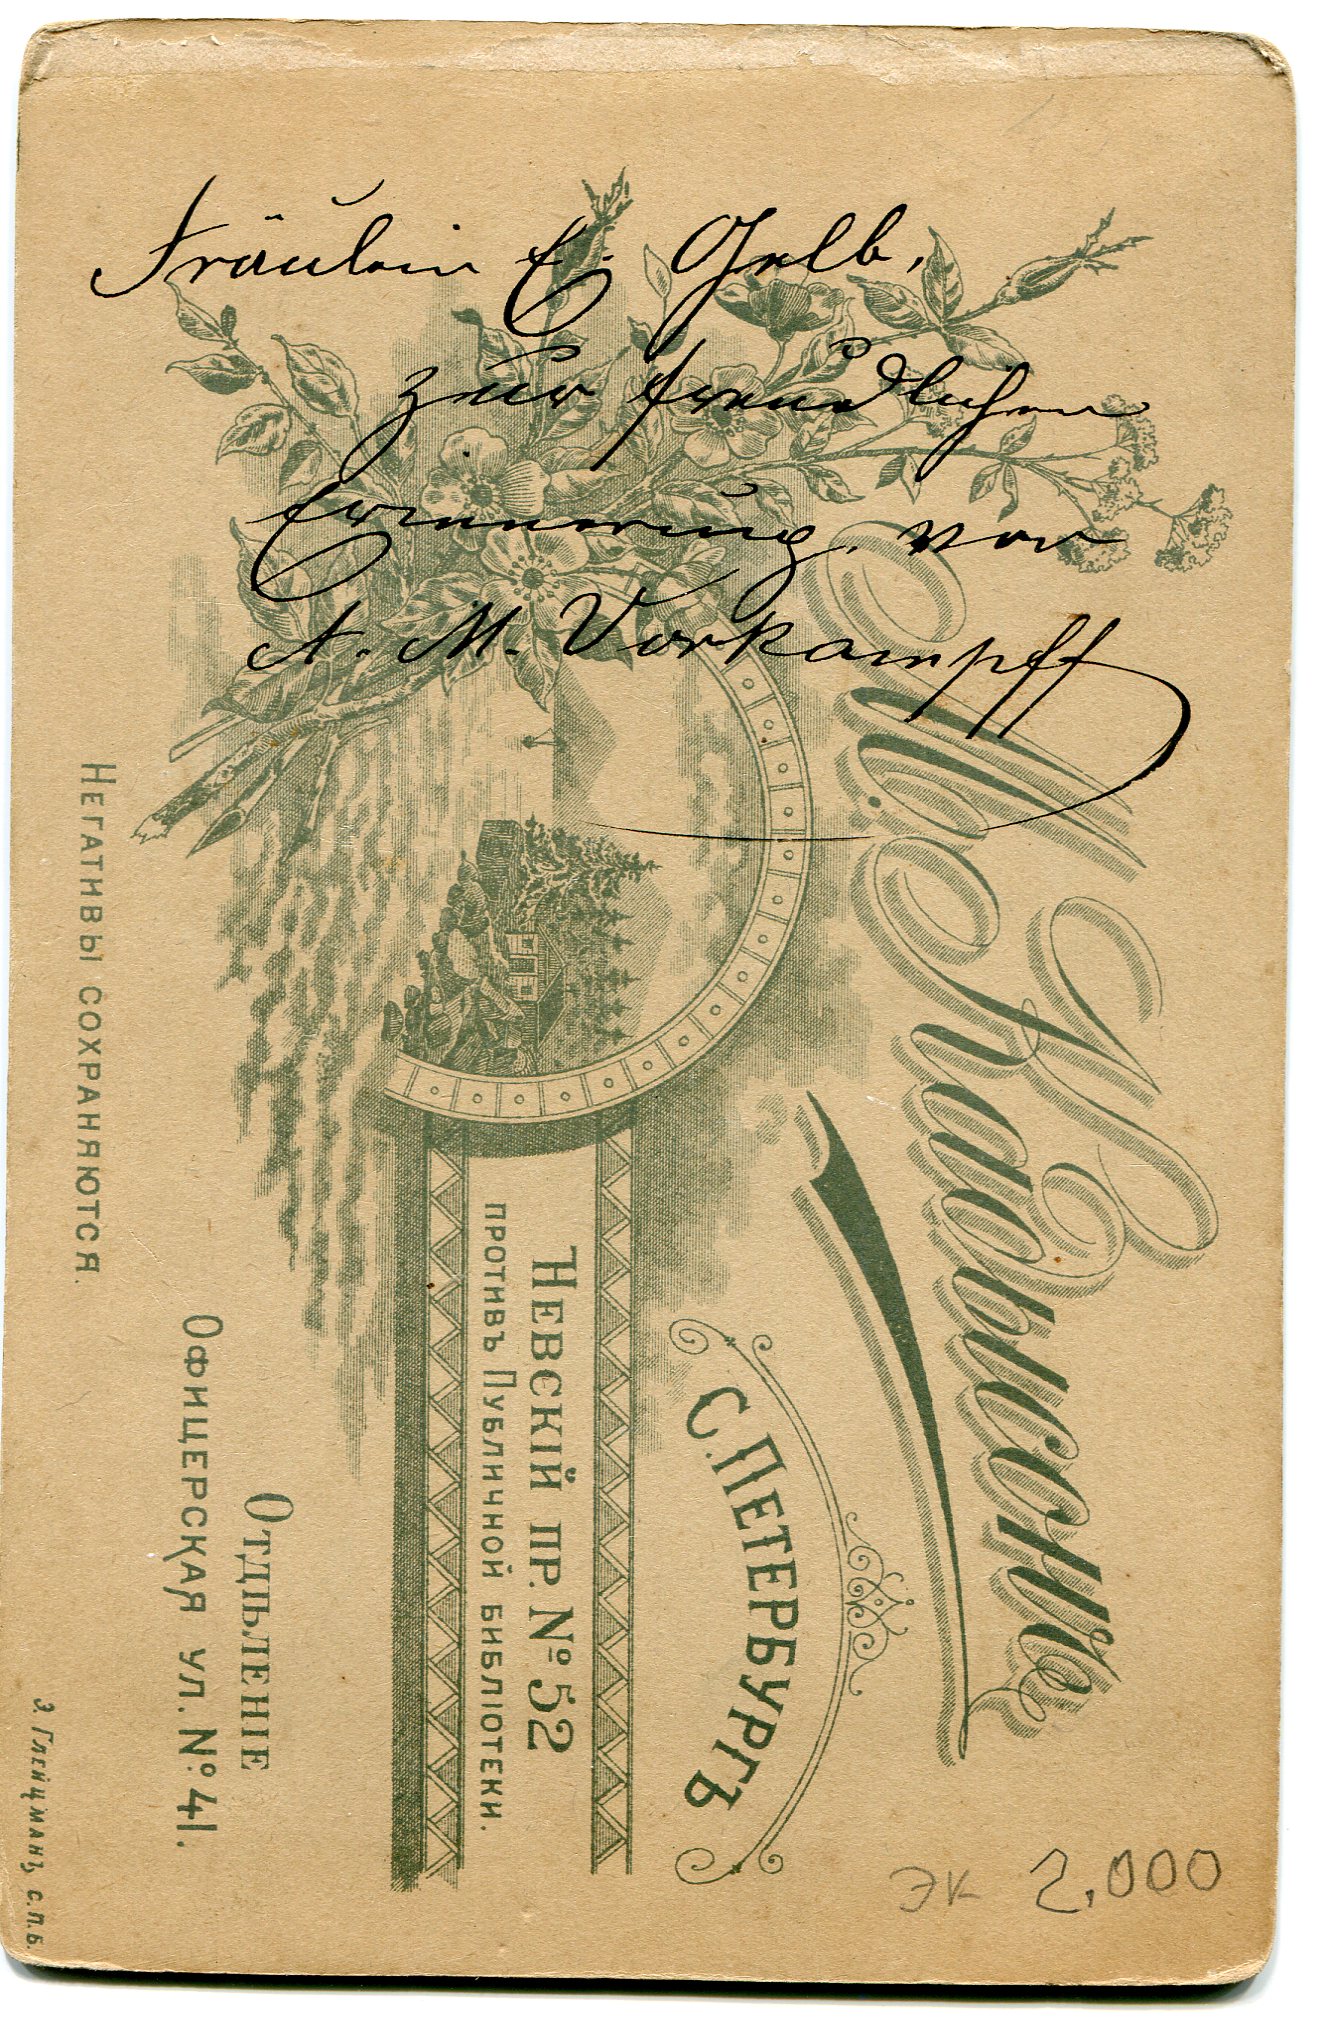 Fräulein E. Gelb,
zur freundlichen
Erinnerung von
A. M. Vorkampff
С. ПЕТЕРБУРГЪ
НЕВСКІЙ ПР. № 52
ПРОТИВЪ ПУБЛИЧНОЙ БИБЛІОТЕКИ.
ОТДѢЛЕНІЕ
ОФИЦЕРСКАЯ УЛ. № 41.
НЕГАТИВЫ СОХРАНЯЮТСЯ.
Э. ГЛЕЙЦМАНЪ, С.П.Б.
ЭК 2.000